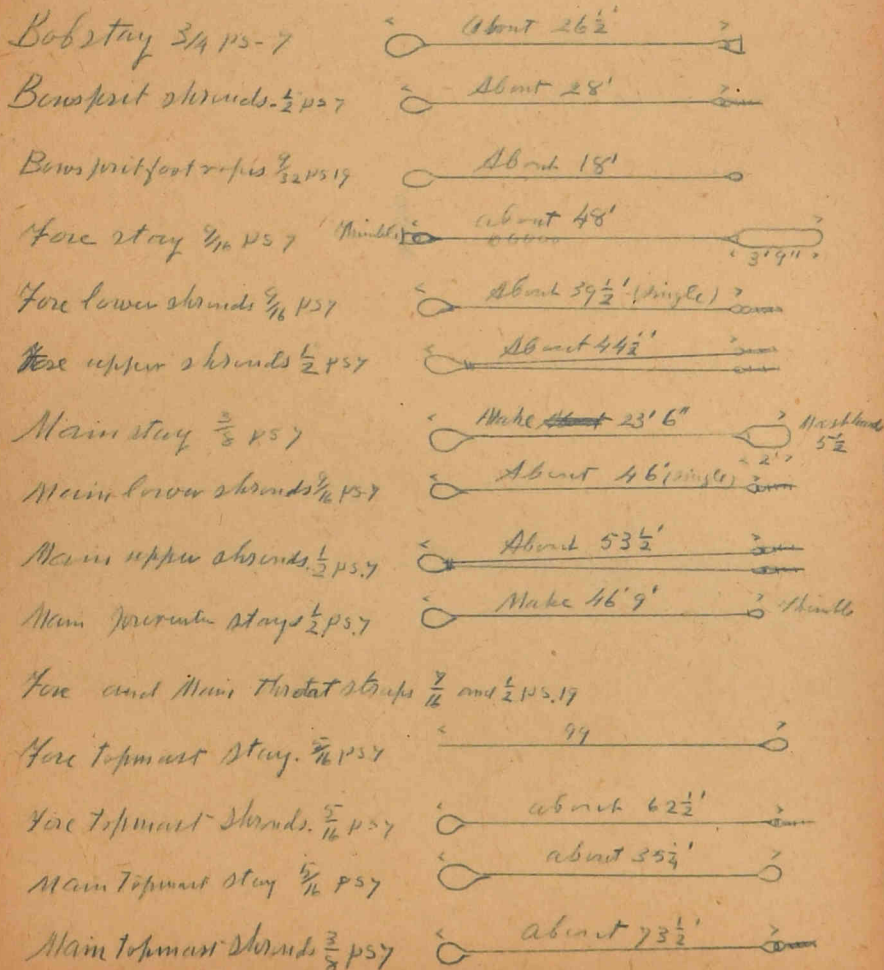 Bobstay 3/4 PS-7 About 26 1/2'
Bowsprit shrouds - 1/2 PS 7 About 28'
Bowsprit foot ropes 9/32 PS 19 About 18'
Fore stay 9/16 PS 7 Thimble about 48'
3' 9"
Fore lower shrouds 9/16 PS 7 About 39 1/2' (single)
Fore upper shrouds 1/2 PS 7 About 44 1/2'
Main stay 5/8 PS 7 Make About 23' 6" Masthead
5 1/2
2'
Main lower shrouds 9/16 PS-7 About 46' (single)
Main upper shrouds. 1/2 PS.7 About 53 1/2'
Main preventer stays 1/2 PS.7 Make 46' 9' Thimble
Fore and Main Throat straps 7/16 and 1/2 PS.19
Fore topmast stay. 5/16 PS 7 99
Fore topmast Shrouds. 5/16 PS 7 about 62 1/2'
Main Topmast stay 5/16 PS 7 about 35 1/4'
Main topmast shrouds 3/8 PS 7 about 73 1/2'